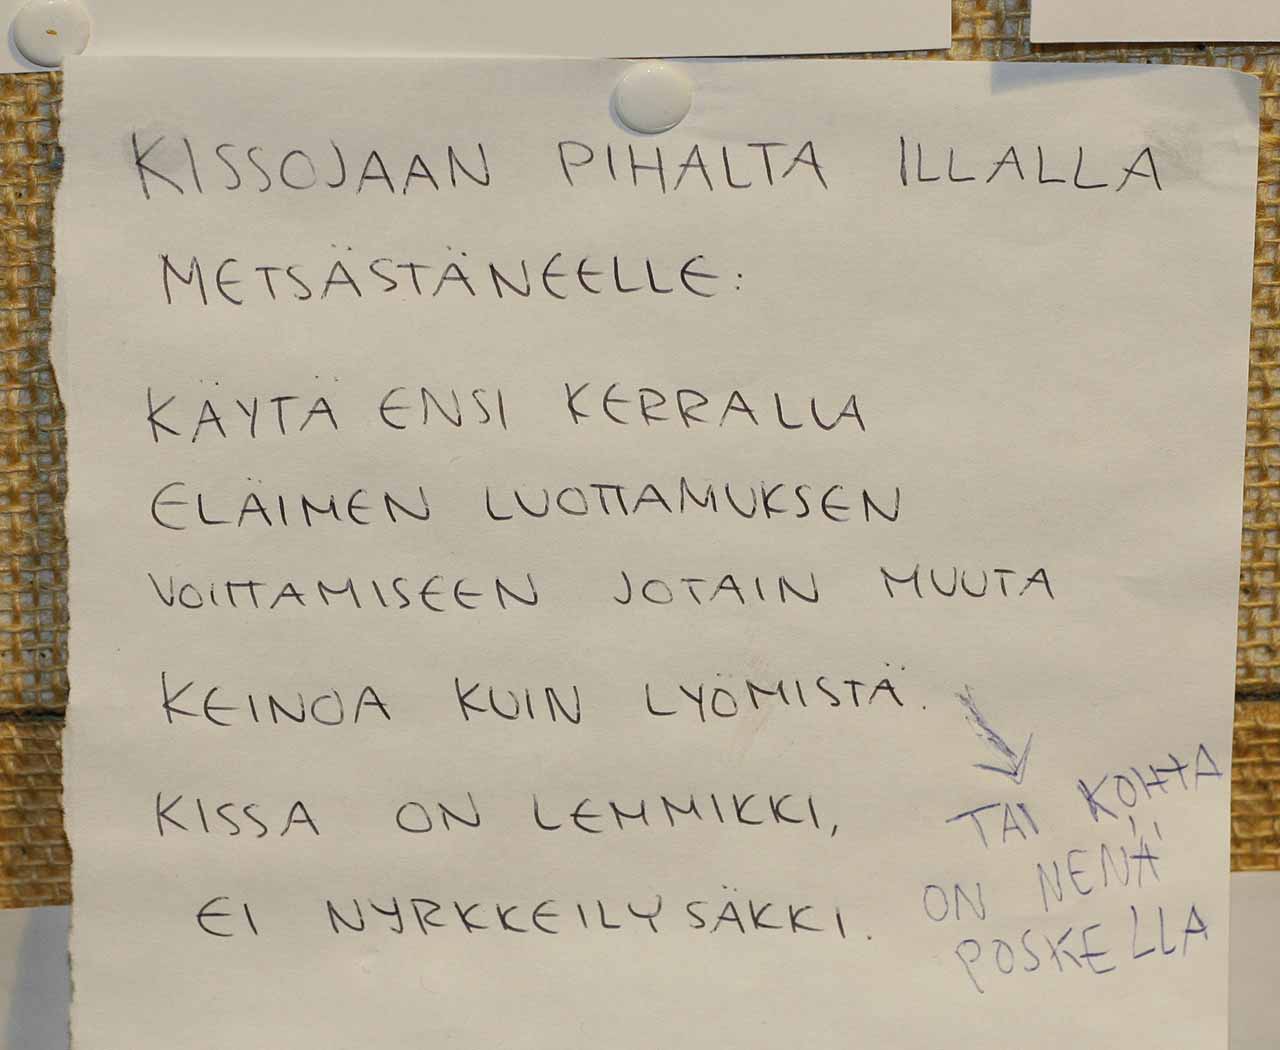 KISSOJAAN PIHALTA ILLALLA
METSÄSTÄNEELLE:
KÄYTÄ ENSI KERRALLA
ELÄIMEN LUOTTAMUKSEN
VOITTAMISEEN JOTAIN MUUTA
KEINOA KUIN LYÖMISTÄ.
KISSA ON LEMMIKKI,
EI NYRKKEILYSÄKKI.
TAI KOHTA
ON NENÄ
POSKELLA